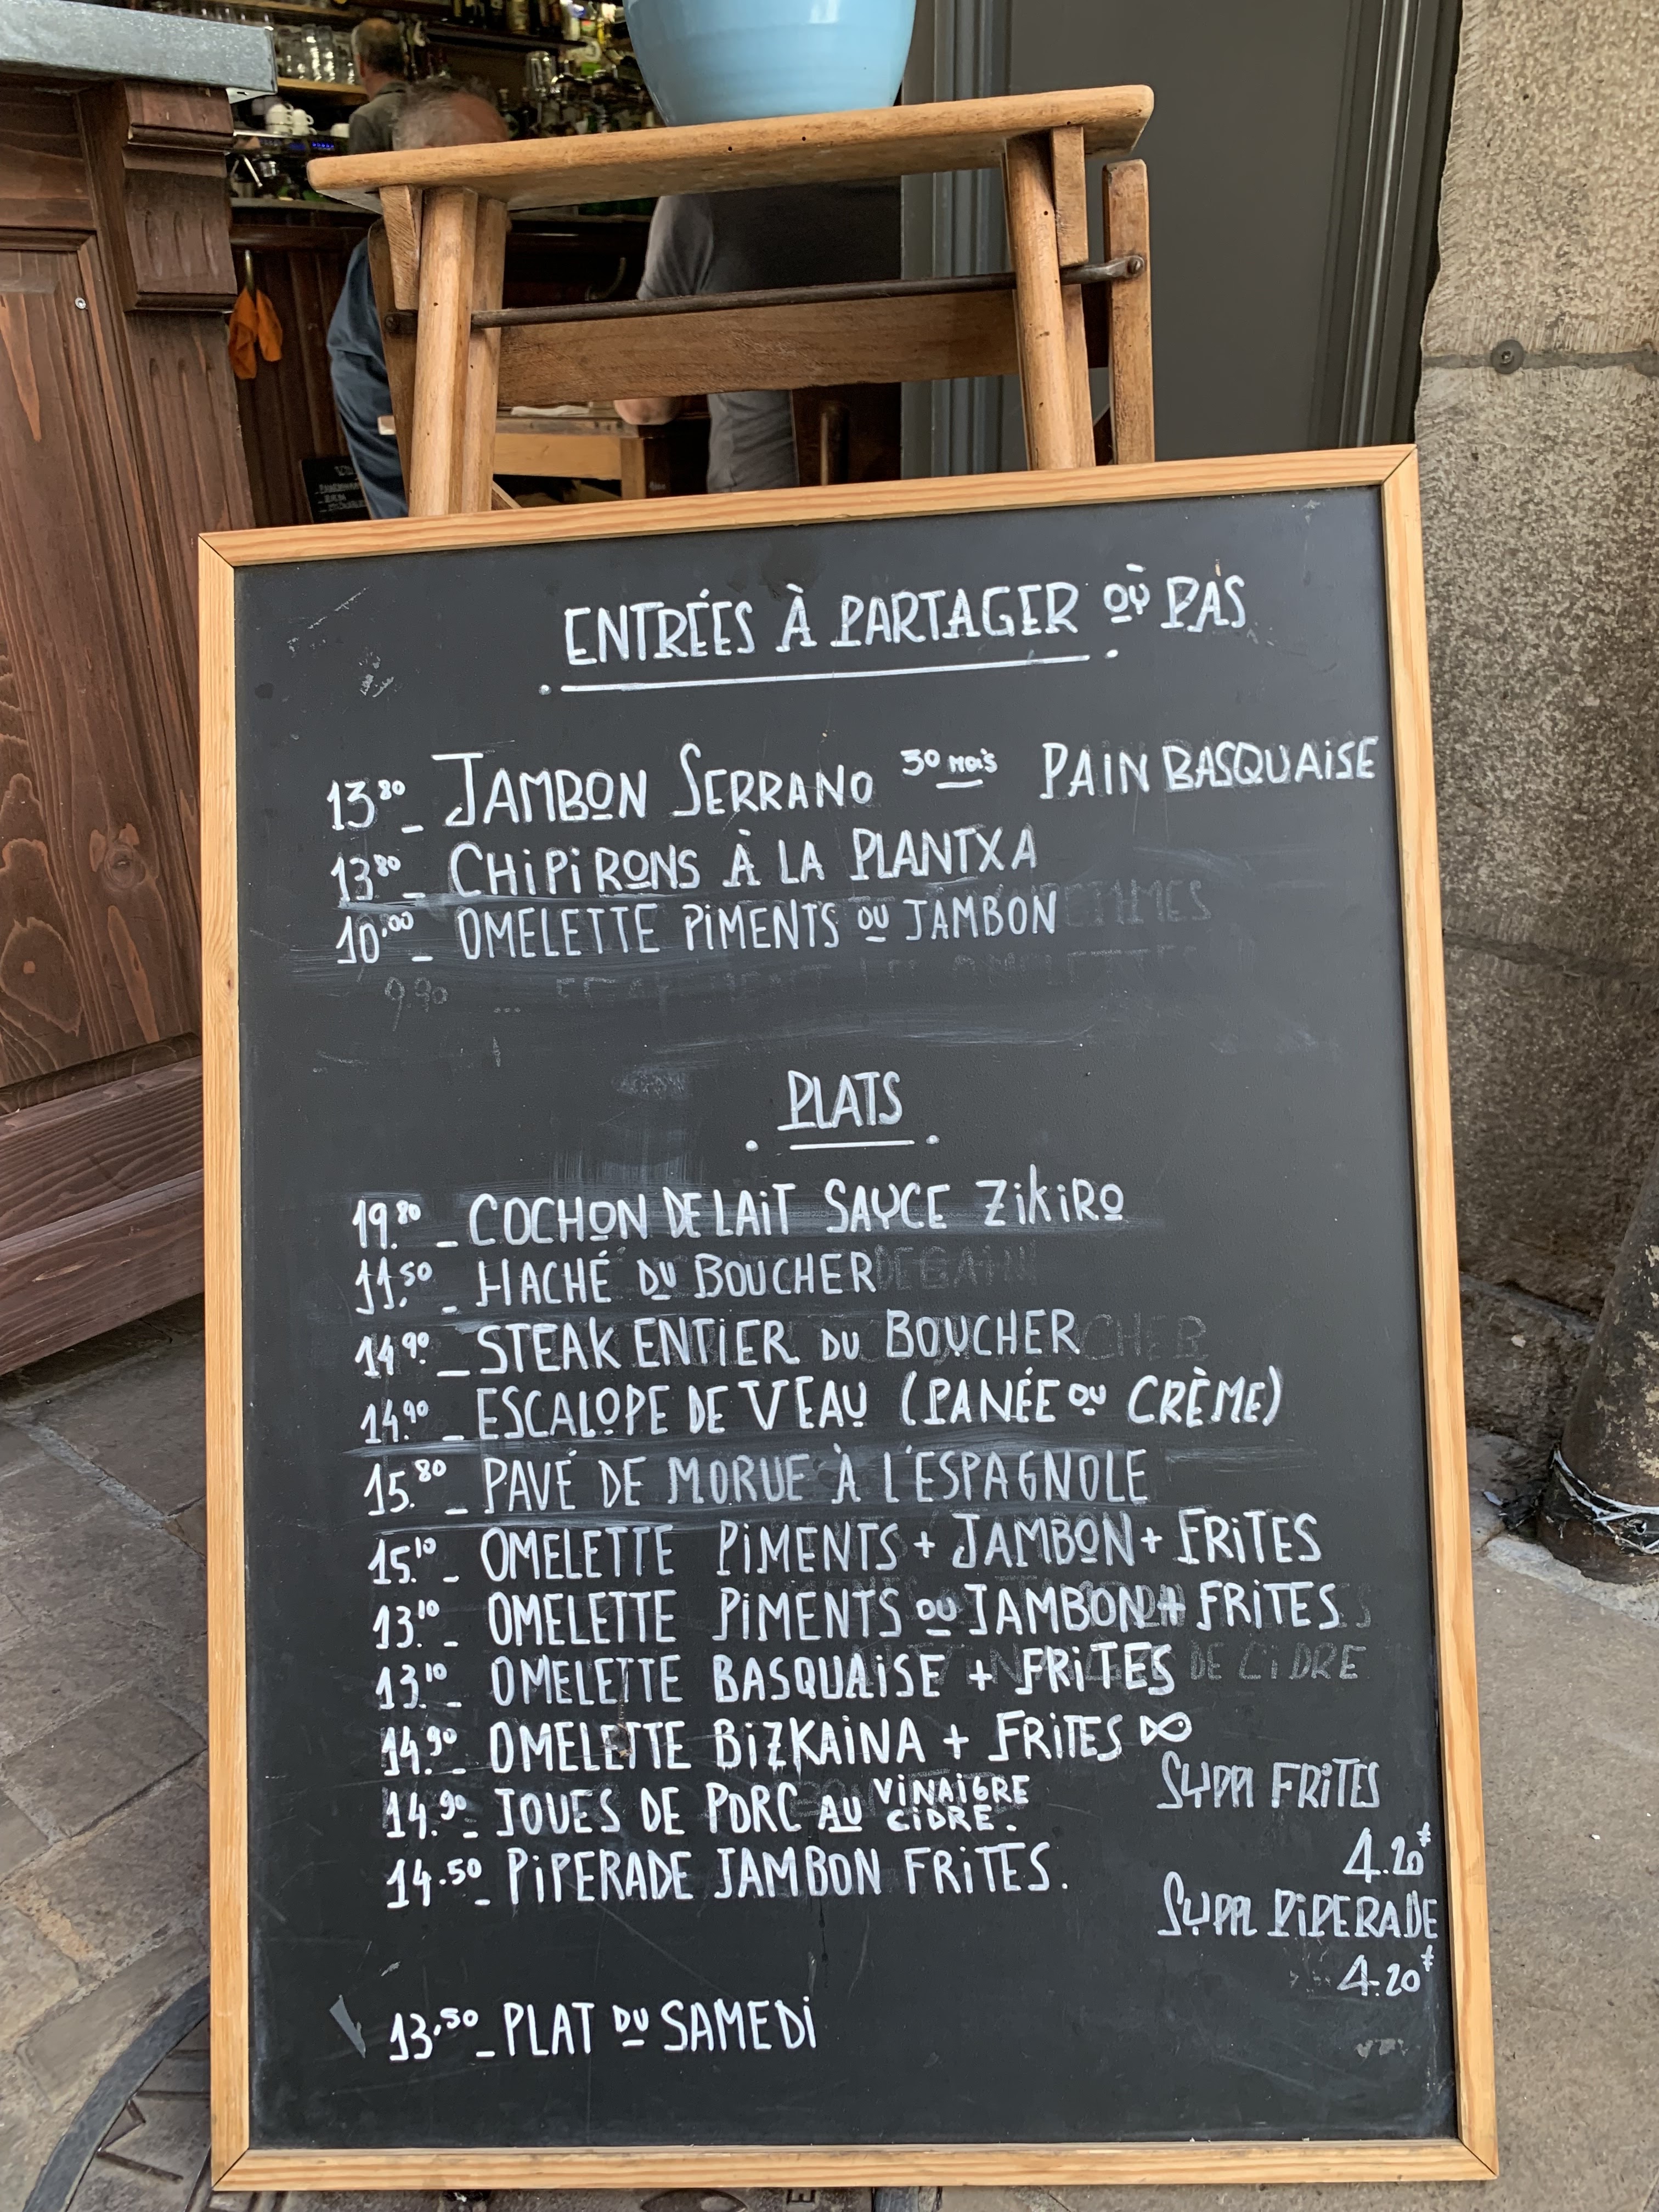 ENTRÉES À PARTAGER OÙ PAS
13.80 _ JAMBON SERRANO 30 mois PAIN BASQUAISE
13.80 _ CHIPIRONS À LA PLANTXA
10.00 _ OMELETTE PIMENTS OU JAMBON
9.90 ...
PLATS
19.80 _ COCHON DE LAIT SAUCE ZIKIRO
11.50 _ HACHÉ DU BOUCHER
14.90 _ STEAK ENTIER DU BOUCHER
14.90 _ ESCALOPE DE VEAU (PANÉE OU CRÈME)
15.80 _ PAVÉ DE MORUE À L'ESPAGNOLE
15.10 _ OMELETTE PIMENTS + JAMBON + FRITES
13.10 _ OMELETTE PIMENTS OU JAMBON + FRITES
13.10 _ OMELETTE BASQUAISE + FRITES DE CIDRE
14.90 _ OMELETTE BIZKAINA + FRITES
14.90 _ JOUES DE PORC AU VINAIGRE CIDRE.
14.50 _ PIPERADE JAMBON FRITES.
SUPPL FRITES
4.20€
SUPPL PIPERADE
4.20€
13.50 _ PLAT DU SAMEDI